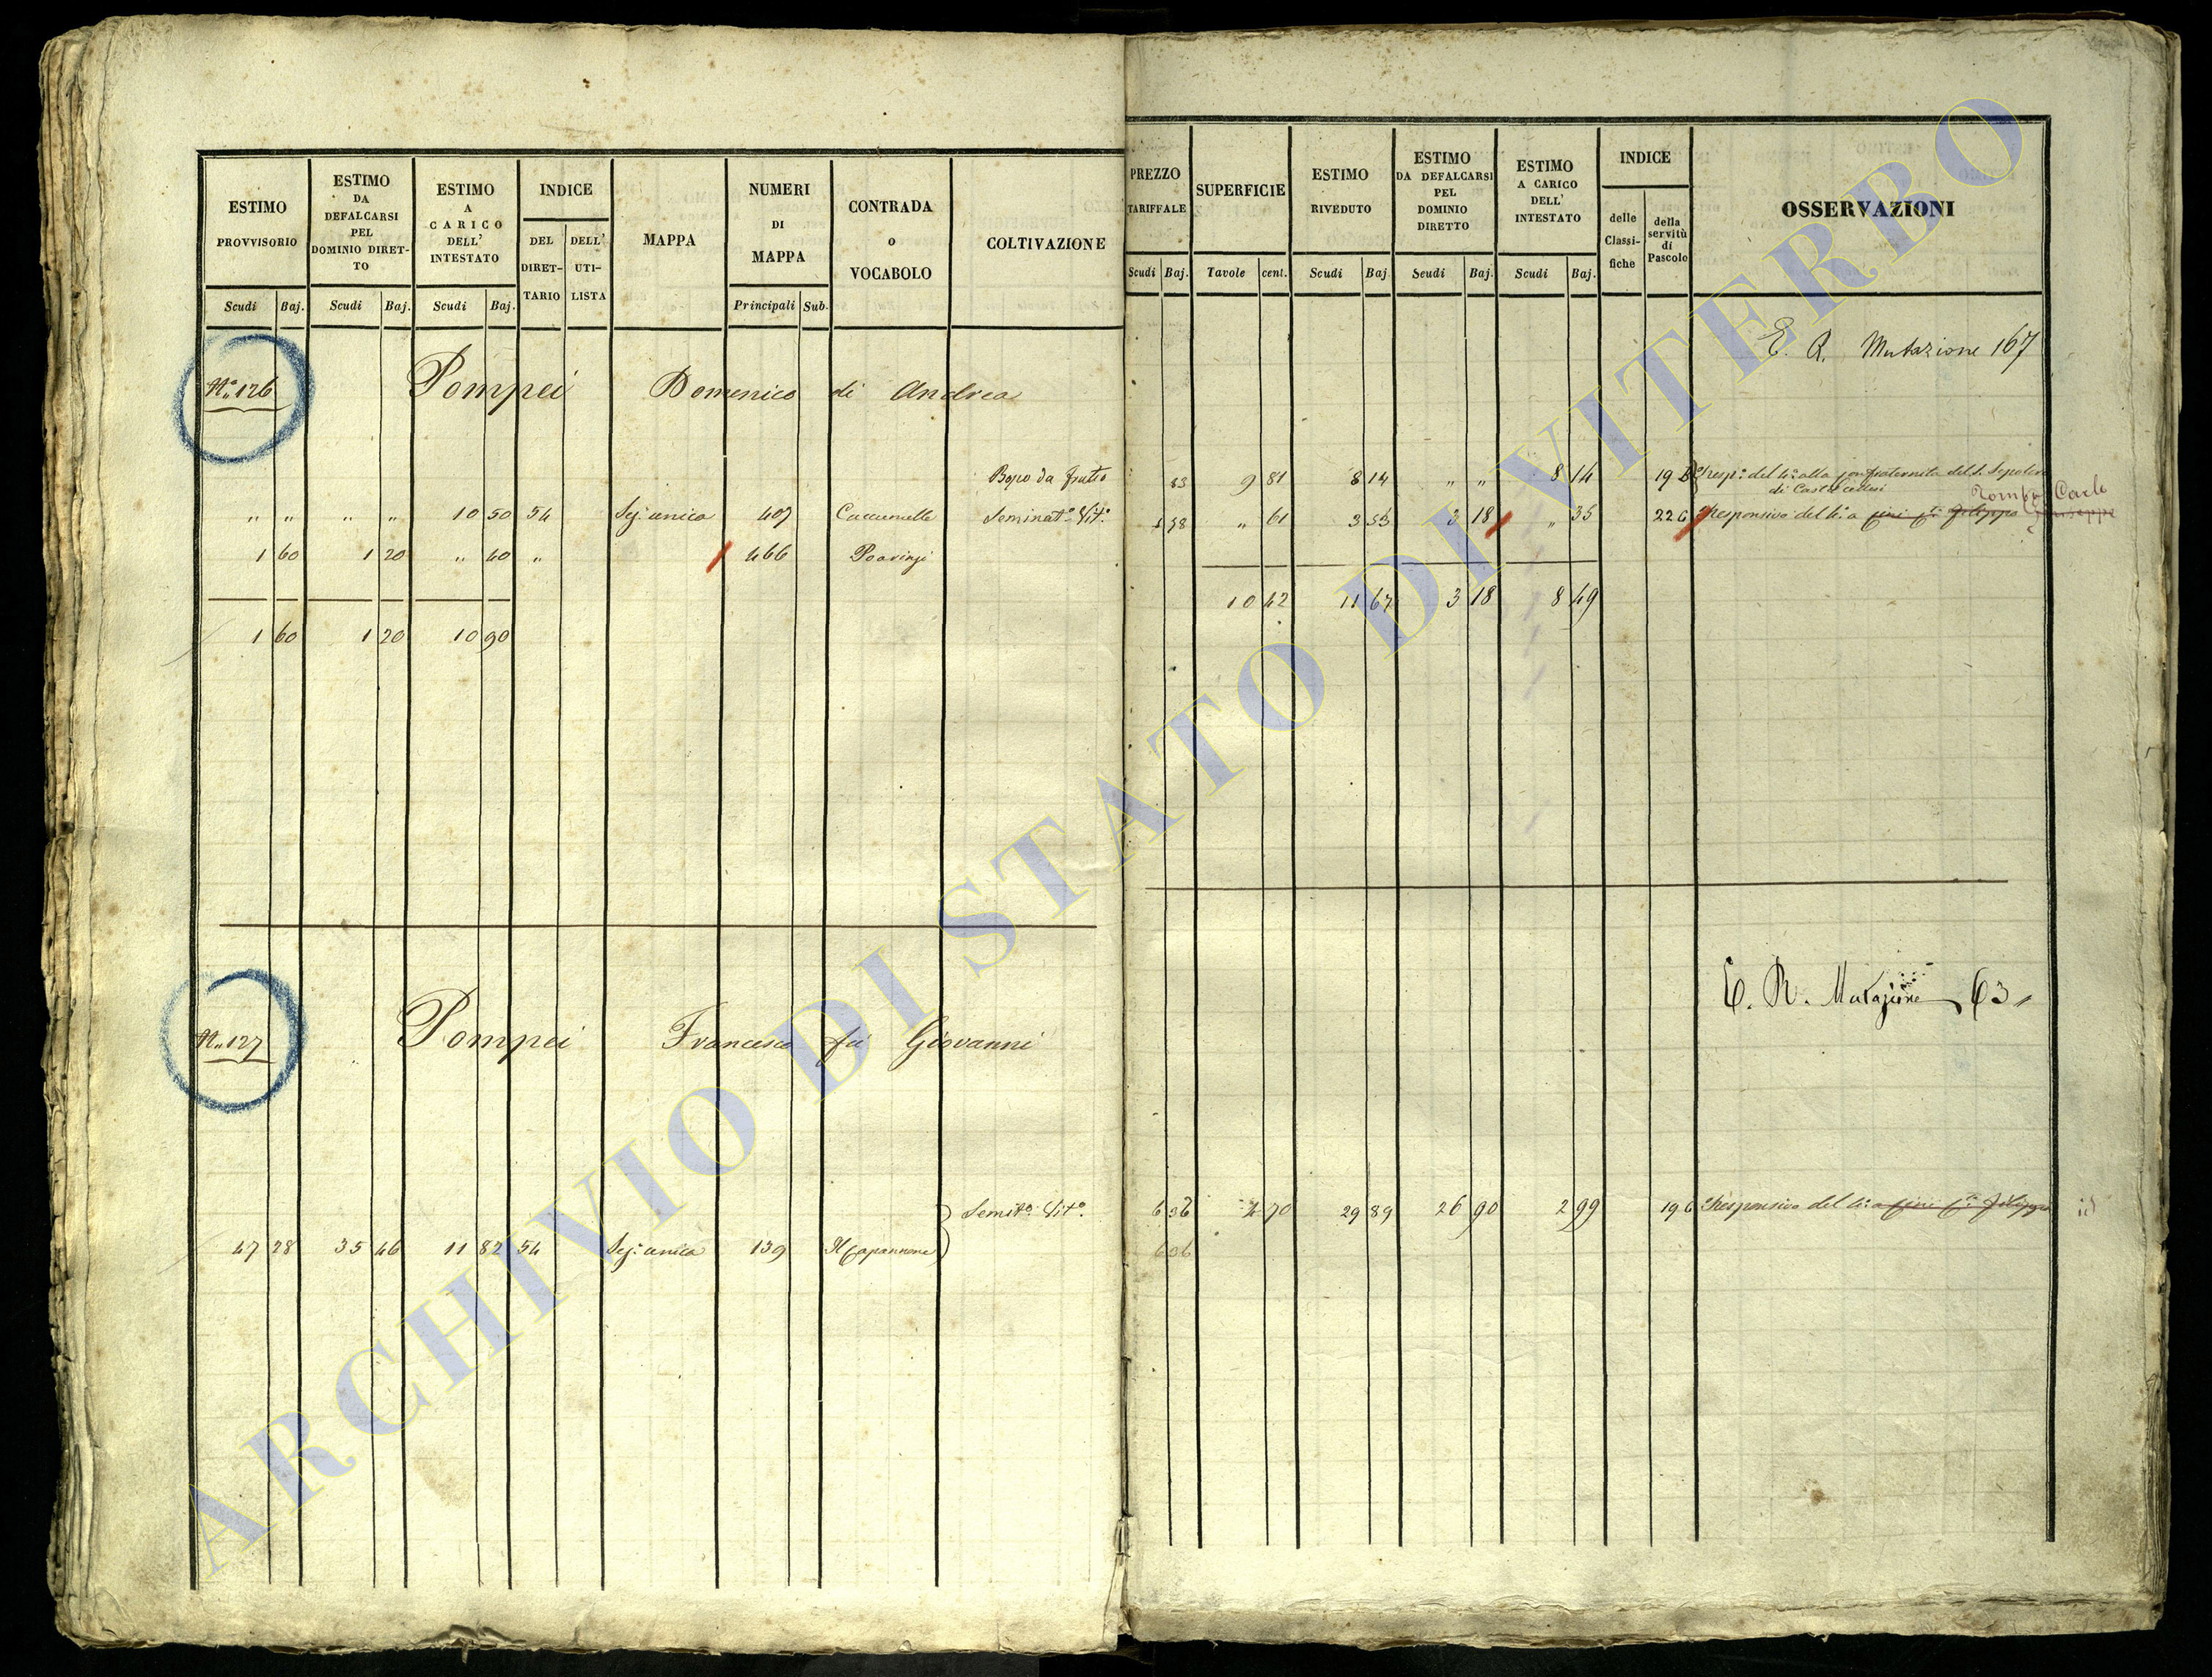 ESTIMO PROVVISORIO
Scudi Baj.
ESTIMO DA DEFALCARSI PEL DOMINIO DIRET-TO
Scudi Baj.
ESTIMO A CARICO DELL' INTESTATO
Scudi Baj.
INDICE
DEL DIRET-TARIO
DELL' UTI-LISTA
MAPPA
NUMERI DI MAPPA
Principali Sub.
CONTRADA o VOCABOLO
COLTIVAZIONE
PREZZO TARIFFALE
Scudi Baj.
SUPERFICIE
Tavole cent.
ESTIMO RIVEDUTO
Scudi Baj.
ESTIMO DA DEFALCARSI PEL DOMINIO DIRETTO
Scudi Baj.
ESTIMO A CARICO DELL' INTESTATO
Scudi Baj.
INDICE
delle Classi-fiche
della servitù di Pascolo
OSSERVAZIONI
E. R. Mutazione 167
N.° 126 Pompei Domenico di Andrea
da frutto 83 9 81 8 14 " " 8 14 19
" " " " 10 50 54 Sez.e unica 407 Seminat.o Vit.o " 61 3 53 3 18 " 35 22 Responsivo del 4.o a
1 60 1 20 " 40 " 466
10 42 11 67 3 18 8 49
1 60 1 20 10 90
E. R. Mutazione 63
N.° 127 Pompei Francesco fù Giovanni
Semi.to Vit.o 6 36 4 70 29 89 26 90 2 99 19 Responsivo del 4.o a
47 28 35 46 11 82 54 Sez.e unica 139 Il Capannone
ARCHIVIO DI STATO DI VITERBO